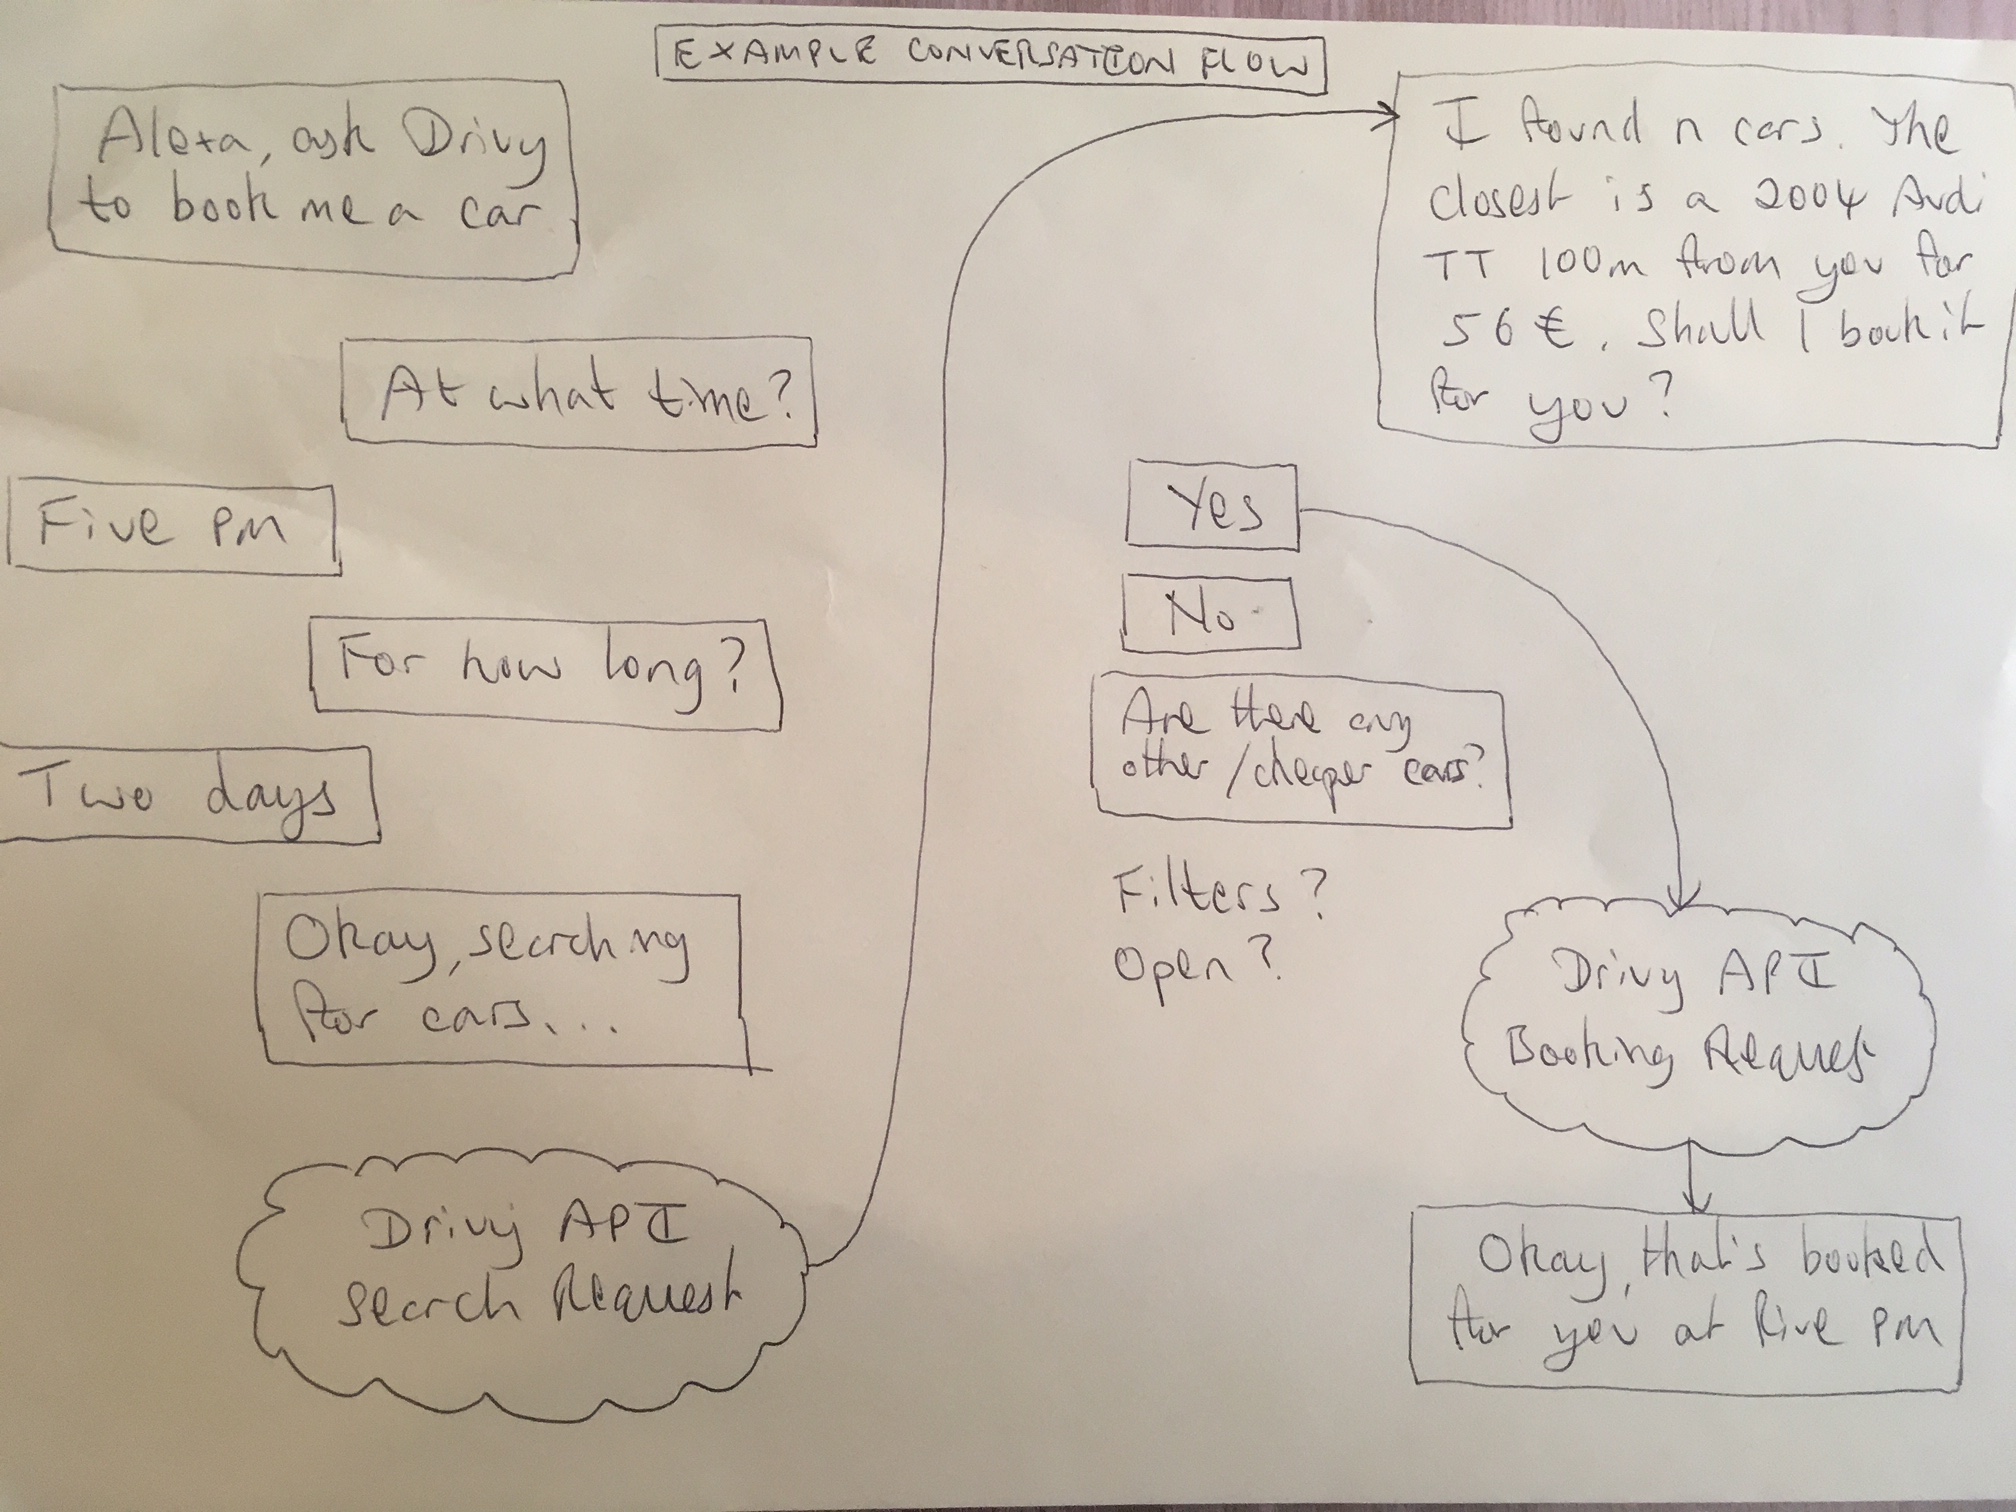 EXAMPLE CONVERSATION FLOW
Alexa, ask Drivy
to book me a car
At what time?
Five pm
For how long?
Two days
Okay, searching
for cars...
Drivy API
Search Request
I found n cars. The
closest is a 2004 Audi
TT 100m from you for
56 €. Shall I book it
for you?
Yes
No
Are there any
other/cheaper cars?
Filters?
Open?
Drivy API
Booking Request
Okay, that's booked
for you at five pm